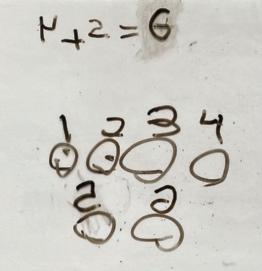 4+2=6
1 2 3 4
2 2